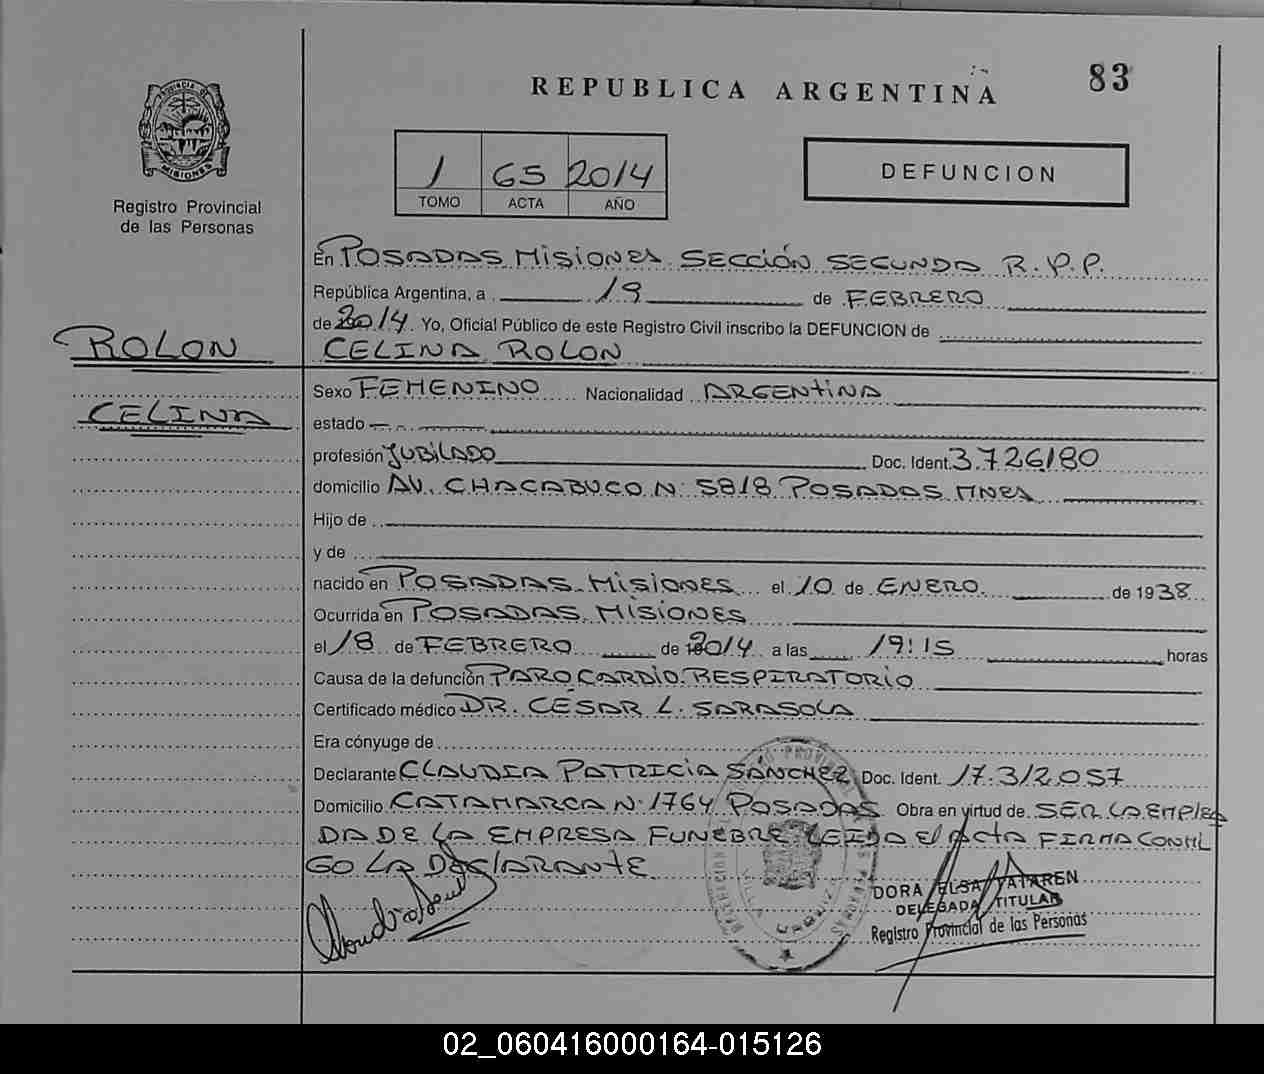 REPUBLICA ARGENTINA
83
PROVINCIA DE MISIONES
Registro Provincial
de las Personas
1 65 2014
TOMO ACTA AÑO
DEFUNCION
En POSADAS MISIONES SECCIÓN SEGUNDA R.P.P.
República Argentina, a 19 de FEBRERO
de 2014. Yo, Oficial Público de este Registro Civil inscribo la DEFUNCION de
ROLON
CELINA ROLON
Sexo FEMENINO Nacionalidad ARGENTINA
CELINA
estado
profesión JUBILADO Doc. Ident. 3.726180
domicilio AV. CHACABUCO N: 5818 POSADAS MNES
Hijo de
y de
nacido en POSADAS MISIONES el 10 de ENERO de 1938
Ocurrida en POSADAS MISIONES
el 18 de FEBRERO de 2014 a las 19:15 horas
Causa de la defunción PARO CARDIO RESPIRATORIO
Certificado médico DR. CÉSAR L. SARASOLA
Era cónyuge de
Declarante CLAUDIA PATRICIA SANCHEZ Doc. Ident. 17.312.057
Domicilio CATAMARCA N: 1764 POSADAS Obra en virtud de SER LA EMPLEA
DA DE LA EMPRESA FUNEBRE LEIDA El ACTA FIRMA CONMI
GO LA DEClARANTE
DORA ELSA YATAREN
DELEGADA TITULAR
Registro Provincial de las Personas
02_060416000164-015126